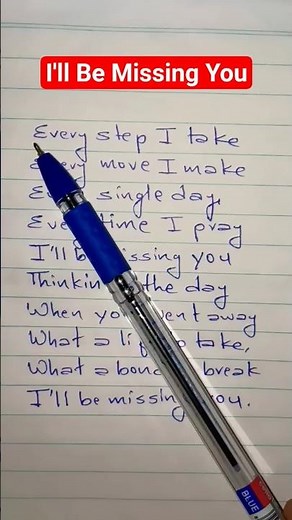 I'll Be Missing You
Every step I take
Every move I make
single day,
I pray
I'll be missing you
Thinking the day
When you went away
What a take,
What a bond break
I'll be missing you.
BLUE